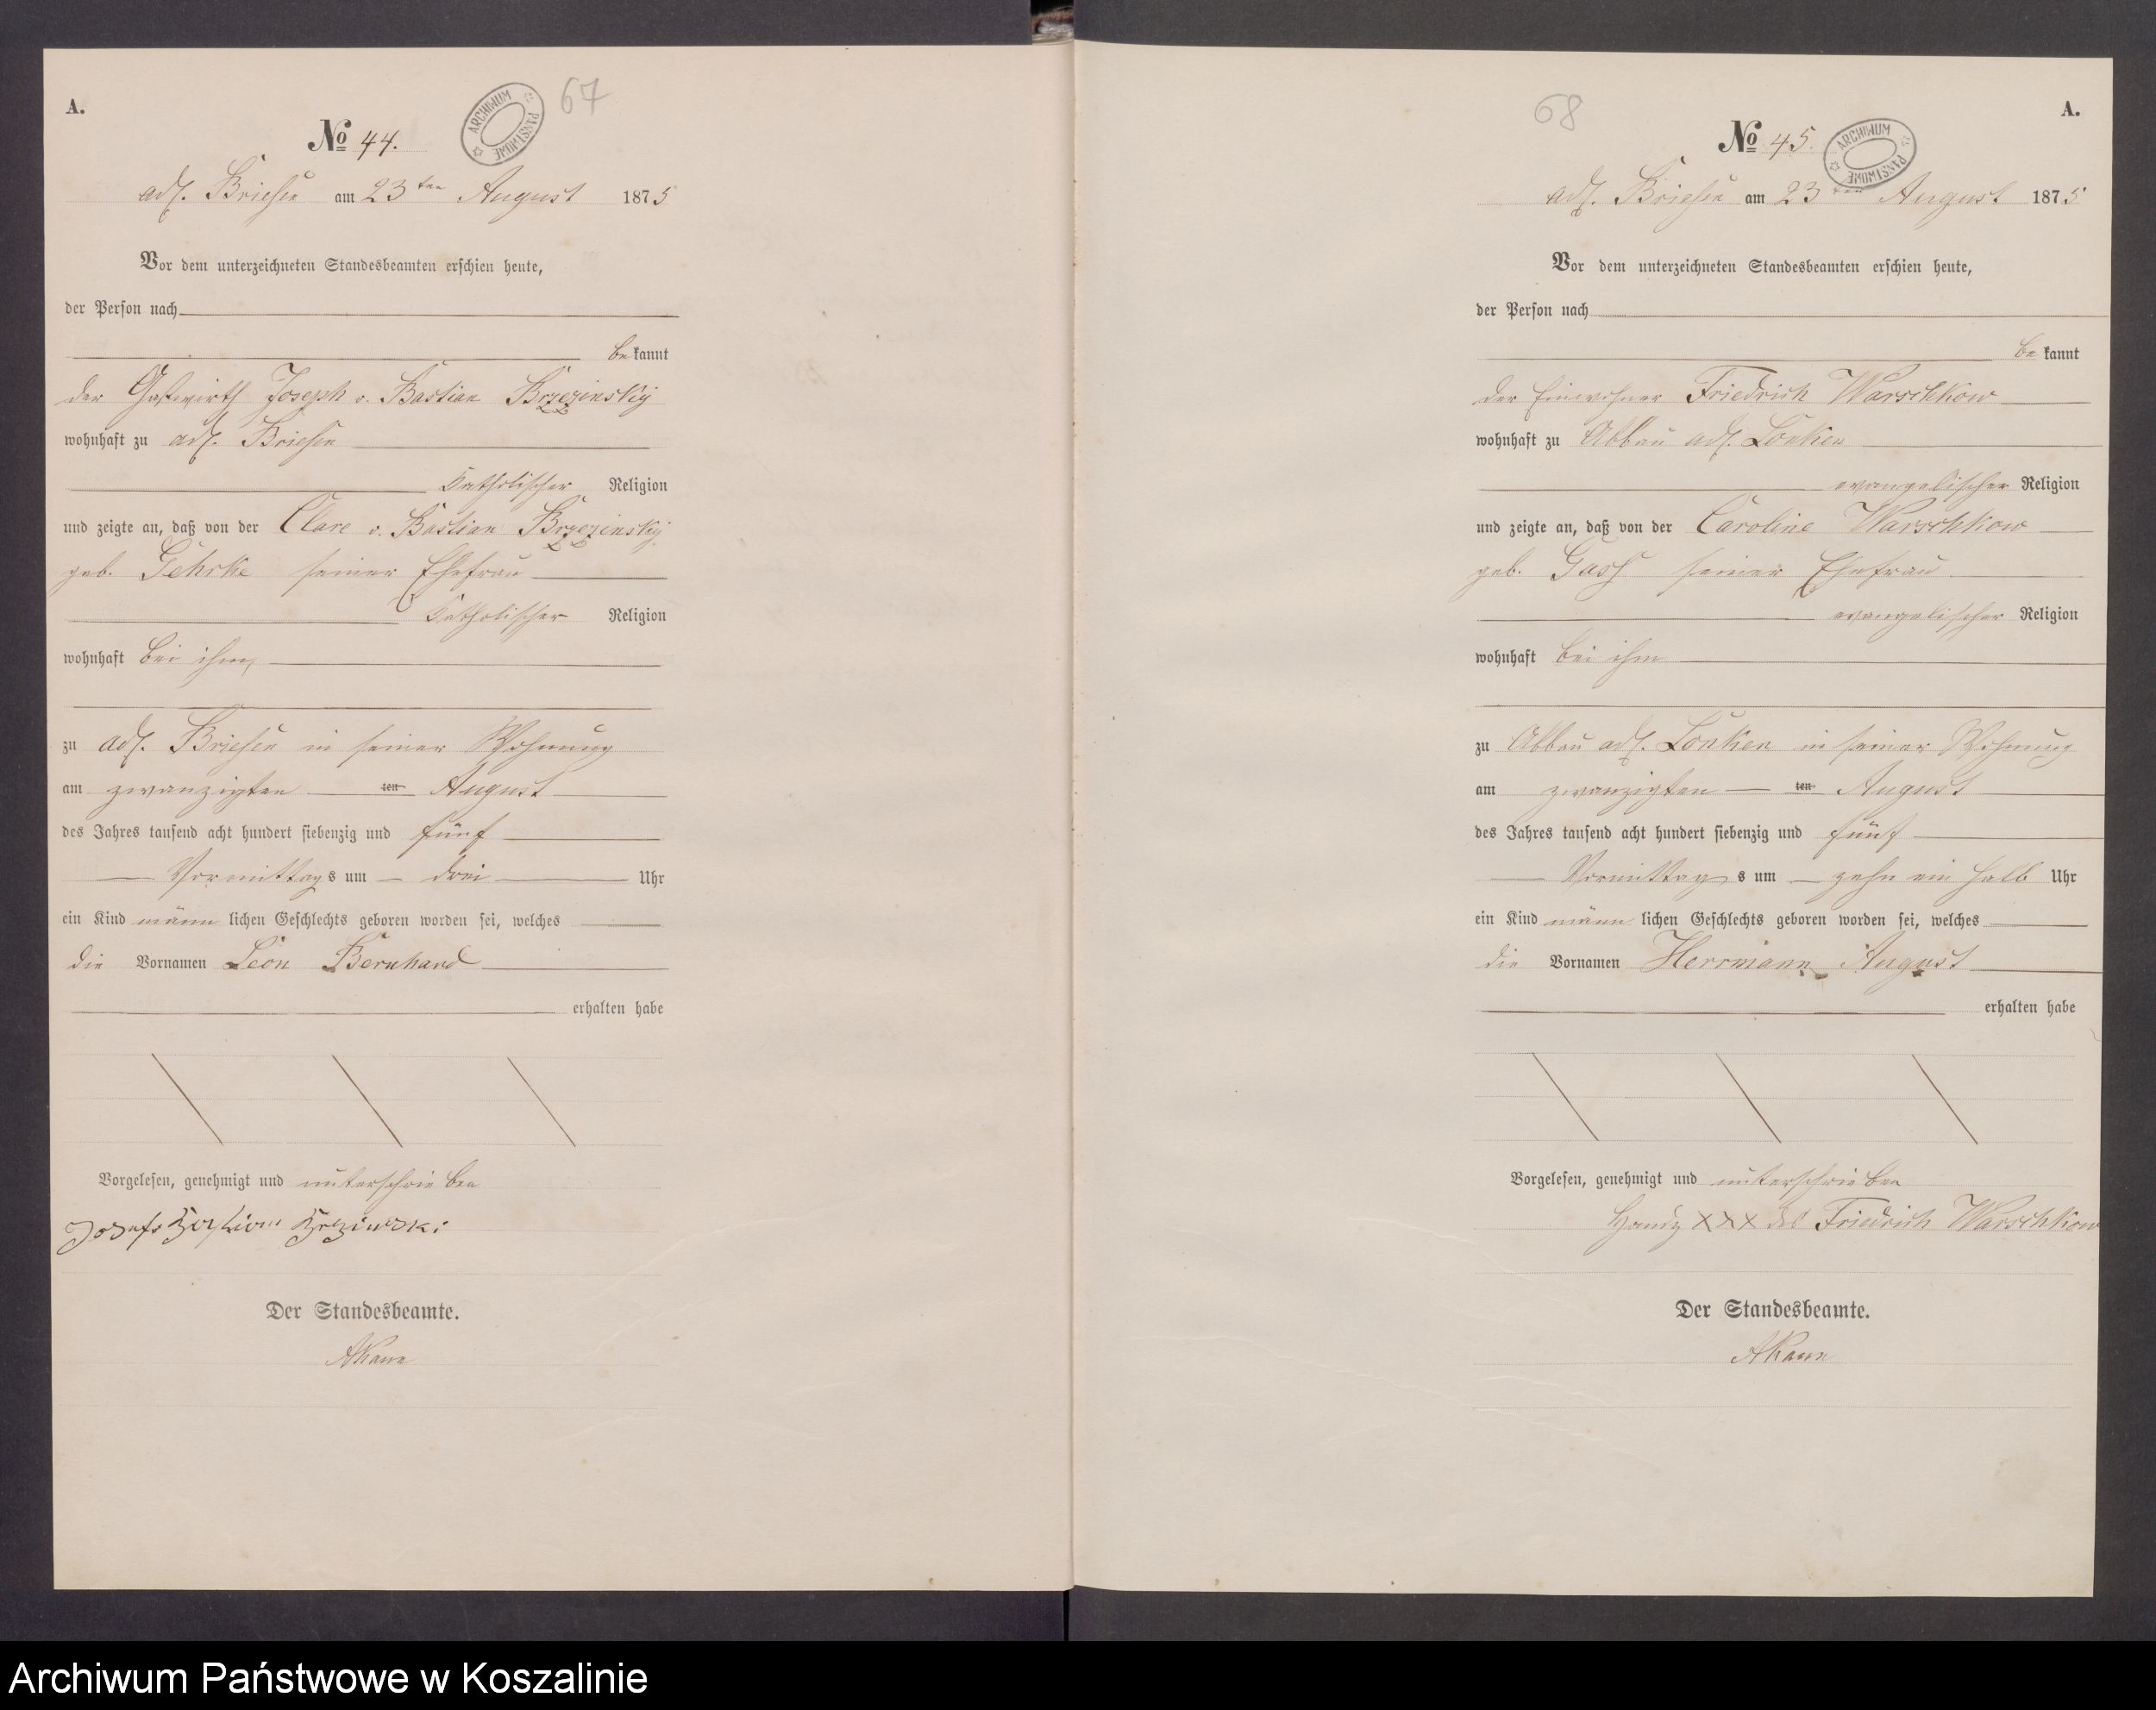 A.
67
ARCHIWUM PAŃSTWOWE
No 44.
adl. Briesen am 23ten August 1875
Vor dem unterzeichneten Standesbeamten erschien heute,
der Person nach
bekannt
der Gastwirth Joseph v. Bastian Brzezinsky
wohnhaft zu adl. Briesen
katholischer Religion
und zeigte an, daß von der Clare v. Bastian Brzezinsky
geb. Gehrke seiner Ehefrau
katholischer Religion
wohnhaft bei ihm,
zu adl. Briesen in seiner Wohnung
am zwanzigten ten August
des Jahres tausend acht hundert siebenzig und fünf
Vormittags um drei Uhr
ein Kind männlichen Geschlechts geboren worden sei, welches
die Vornamen Leon Bernhard
erhalten habe
Vorgelesen, genehmigt und unterschrieben
Der Standesbeamte.
68
A.
ARCHIWUM PAŃSTWOWE
No 45.
adl. Briesen am 23ten August 1875
Vor dem unterzeichneten Standesbeamten erschien heute,
der Person nach
bekannt
der Einwohner Friedrich Warschkow
wohnhaft zu Abbau adl. Lonken
evangelischer Religion
und zeigte an, daß von der Caroline Warschkow
geb. Gass seiner Ehefrau
evangelischer Religion
wohnhaft bei ihm
zu Abbau adl. Lonken in seiner Wohnung
am zwanzigten ten August
des Jahres tausend acht hundert siebenzig und fünf
Vormittags um zehn ein halb Uhr
ein Kind männlichen Geschlechts geboren worden sei, welches
die Vornamen Herrmann August
erhalten habe
Vorgelesen, genehmigt und unterschrieben
Handz XXX des Friedrich Warschkow
Der Standesbeamte.
Archiwum Państwowe w Koszalinie